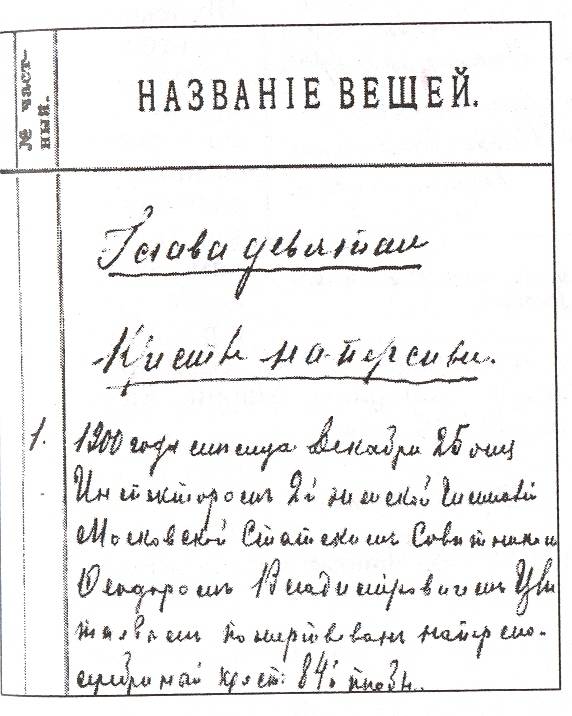 № част-
ный.
НАЗВАНІЕ ВЕЩЕЙ.
Глава девятая
Кресты наперсные.
1.
1900 года месяца Декабря 25 дня
Инспекторомъ 2й женской Гимназіи
Московской Статскимъ Советникомъ
Ѳеодоромъ Владиміровичемъ Цве
таевымъ пожертвованъ наперсно-
серебряный крестъ: 84й пробы.